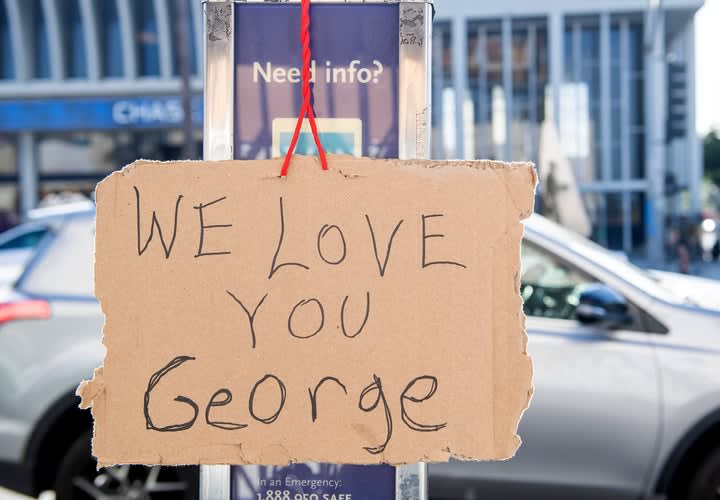 Need info?
CHAS
WE LOVE
YOU
George
In an Emergency:
1.888.950.SAFE